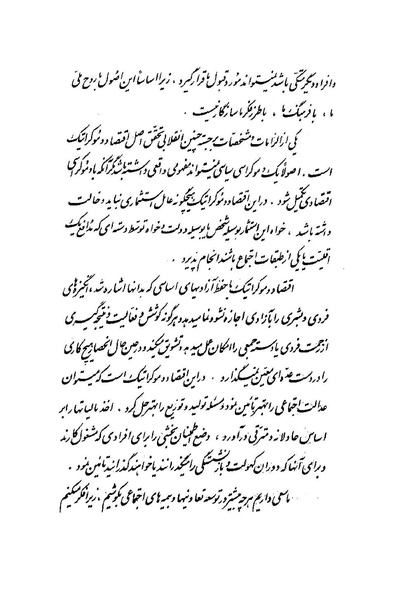 و افراد دیگر متکی باشد نمیتواند مورد قبول ما قرار گیرد ، زیرا اساساً این اصول با روح ملی
ما ، با فرهنگ ما ، با طرز فکر ما سازگار نیست .
یکی از الزامات و مشخصات برجسته چنین انقلابی تحقق اصل اقتصاد دموکراتیک
است . اصولا یک دموکراسی سیاسی نمیتواند مفهومی واقعی داشته باشد مگر آنکه با دموکراسی
اقتصادی تکمیل شود . در این اقتصاد دموکراتیک هیچگونه عامل استثماری نباید دخالت
داشته باشد ، خواه این استثمار بوسیله شخص یا بوسیله دولت و خواه توسط دسته ای که مدافع یک
اقلیت یا یکی از طبقات اجتماع باشند انجام پذیرد .
اقتصاد دموکراتیک با حفظ آزادیهای اساسی که بدانها اشاره شد ، انگیزه های
فردی و بشری را با آزادی اجازه نشو و نما میدهد و هر گونه کوشش و فعالیت و نتیجه گیری
از زحمت فردی یا دسته جمعی را امکان عمل میدهد و تشویق میکند و در عین حال انحصار هیچ کاری
را در دست عده ای معین نمیگذارد . در این اقتصاد دموکراتیک است که میتوان
عدالت اجتماعی را بهتر تأمین نمود و مسئله تولید و توزیع را بهتر حل کرد . اخذ مالیاتها را بر
اساس عادلانه و مترقی درآورد ، وضع اطمینان بخشی را برای افرادی که مشغول کارند
و برای آنها که دوران کهولت و بازنشستگی را میگذرانند یا خواهند گذرانید تأمین نمود .
ما سعی داریم هر چه بیشتر در توسعه تعاونیها و بیمه های اجتماعی بکوشیم ، زیرا فکر میکنیم